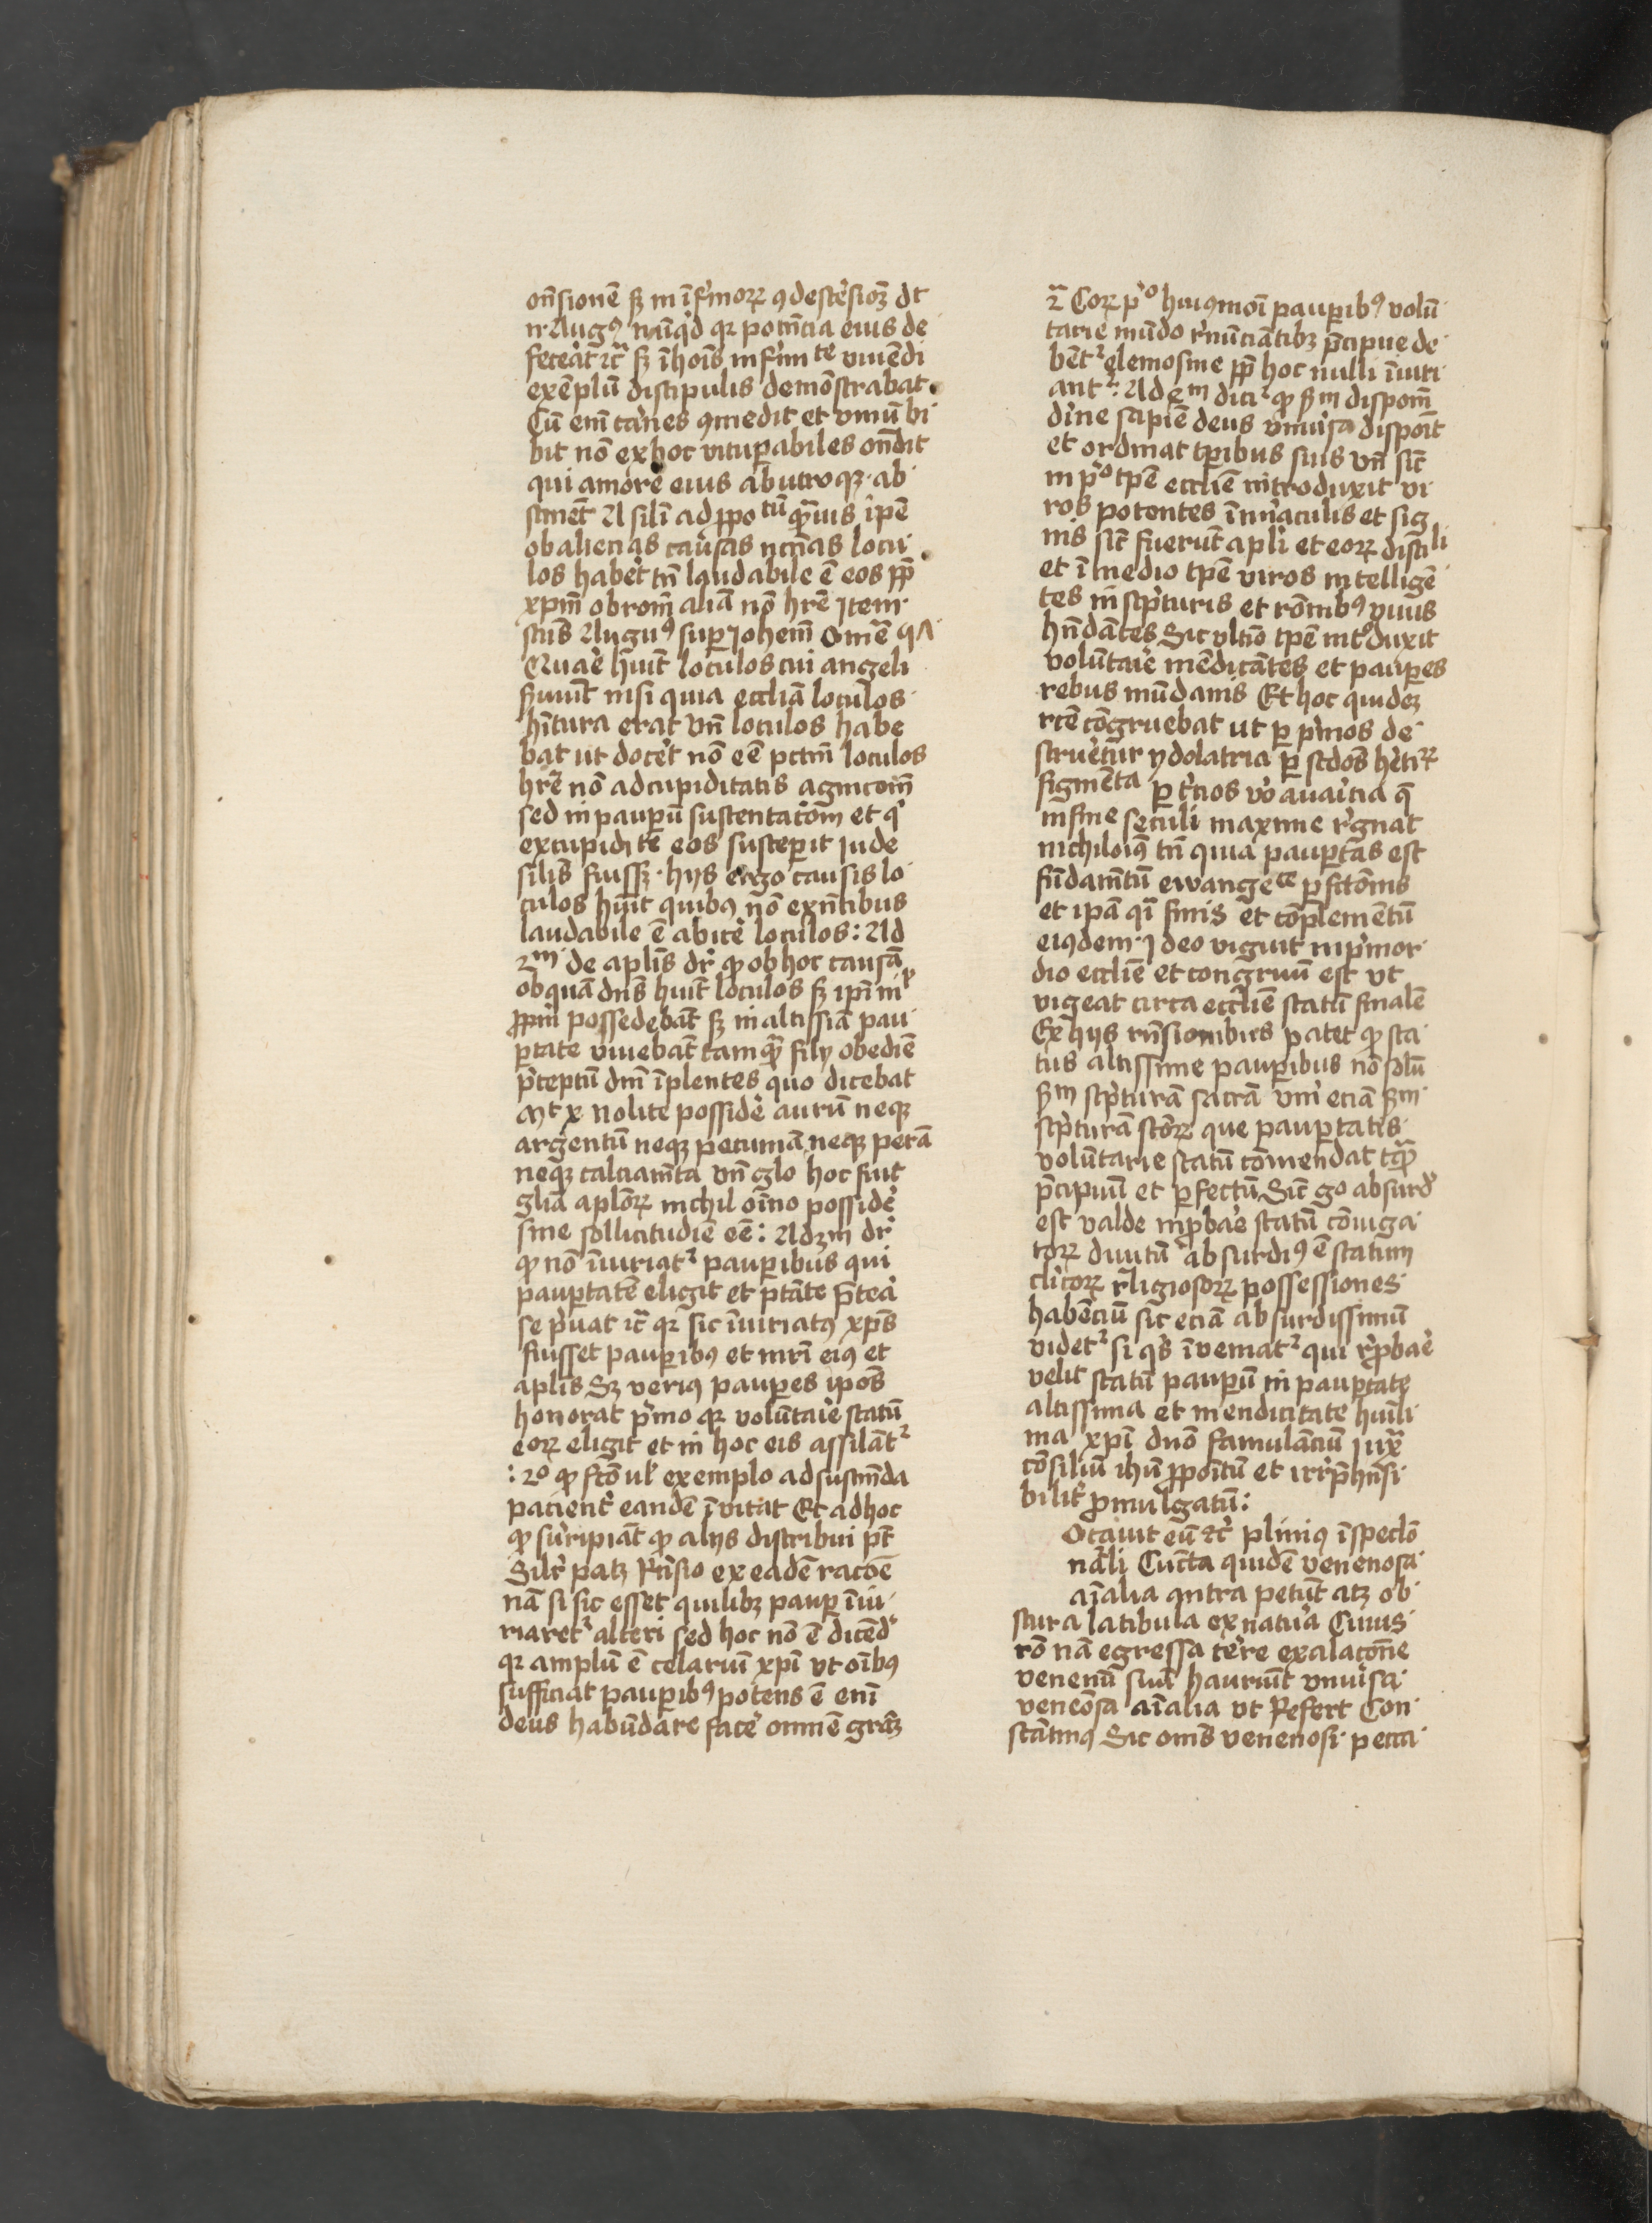 on̄sionē sꝫ in īfirmorꝝ ꝯdescēsioꝫ dt
n. Augꝰ nūqͥd qꝛ potn̄cia eius de
feceāt ī hoīs infirmte viuēdi
exēplū discipulis demōstrabat
Cū em̄ carnes ꝯmedit et vinū bi
bit nō ex hoc vituꝑabiles on̄dit
qui amore eius ab utroqꝫ ab
stinēt A sili ad ꝓpotū qͣuis ipē
ob alienas causas nccīas locu
los habet tn̄ laudabile ē eos ꝓp̄
xpm̄ ob rom̄ aliā nō hr̄e Item
Augꝰ suꝑ Iohem̄ Omē
Quaē hūit loculos cui angeli
nisi quia eccliā loculos
hitura erat vn̄ loculos habe
bat ut docet nō eē pctm̄ loculos
hr̄e nō ad cupiditatis
sed in pauꝑū sustentacōm et qͥ
ex cupidite eos susceꝑit iude
silis fuissꝫ hijs ergo causis lo
culos hūit quibꝰ nō exn̄tibus
laudabile ē abice loculos: Ad
2m de aplis dr̄ ꝙ ob hoc causā
ob quā dn̄s hūit loculos sꝫ ipī
ꝓpm possedebāt sꝫ in altissīa pau
ꝑtate viuebāt tamqͣ filij obediē
p̄ceptū dn̄i īplentes quo dicebat
Mt x Nolite posside aurū neqꝫ
argentū neqꝫ pecuniā neqꝫ perā
neqꝫ calciamīta vn̄ glo hoc fuit
glia aplōrꝝ nichil oīno posside
sine sollicitudiē eē: Ad 3m dr̄
ꝙ nō īiuriatᷣ pauꝑibus qui
pauꝑtatē eligit et ptāte p̄tea
se pͥuat qꝛ sic īiuriatꝰ xps̄
fuisset pauꝑibꝰ et mr̄i eiꝰ et
aplis Sꝫ veriꝰ pauꝑes ipōs
honorat pͥmo qꝛ volūtaie statū
eorꝝ eligit et in hoc eis assilātᷣ
: 2o ꝙ fcō ul̓ exemplo ad sustin̄da
pacient̄ eandē īvitat Et ad hoc
ꝙ surripiāt ꝙ alijs distribui pt̄
Silr̄ patꝫ Rn̄sio ex eadē racōe
nā si sic esset quilibꝫ pauꝑ īiu
riaretᷣ alteri sed hoc nō ē dicēd
qꝛ amplū ē celariū xpi ut oībꝰ
sufficiat pauꝑibꝰ potens ē enī
deus habūdare face omnē grāꝫ
Corꝝ pͥo huiꝰmoī pauꝑibꝰ volū
tarie mūdo rnūciātibꝫ p̄cipue de
bētᷣ elemosine ꝓp̄ hoc nulli īiuri
antᷣ: Ad 6m dicitᷣ ꝙ sm̄ disposm̄
diīne sapiē deus vniūsa dispoīt
et ordinat tꝑibus suis vn̄ sic̄
in pͥo tpē ecclīe introduxit vi
ros potentes ī mͥaculis et sig
nis sic̄ fuerūt apli et eorꝝ discili
et ī medio tpē viros intelligē
tes in scpͥturis et rōnibꝰ viuis
hn̄dātes Sic vltīo tpē introduxit
volūtaie mēdicātes et pauꝑes
rebus mūdanis Et hoc quidēꝫ
rcē cōgruebat ut ꝑ pͥmos de
strueretur ydolatria ꝑ scdōs
figmēta ꝑ tͥcios vo auaricia q̄
in fine seculi maxime rgnat
nichiloīꝰ tn̄ quia pauꝑtas est
fūdamn̄tū ewangecce ꝑfctōnis
et ipā qī finis et cōplemētū
eiꝰdem Ideo viguit in pͥmor
dio ecclīe et congruū est vt
vigeat circa ecclīe statū finalē
Ex hijs rn̄sionibus patet ꝙ sta
tus altissime pauꝑibus nō solū
sm̄ scpͥturā sacrā eciā sm̄
scpͥturā scōrꝝ que pauꝑtatis
volūtarie statū cōmendat tqͣ
p̄cipiū et ꝑfectū Sic̄ go absurd
est valde inꝓbae statū cōiuga
torꝝ diuitū absurdiꝰ ē statum
cliͥcorꝝ rligiosorꝝ possessiones
habēciū sic eciā absurdissimū
videtᷣ si qͥs īveniatᷣ qui rꝓbae
velit statū pauꝑū in pauꝑtate
altissima et mendicitate huīli
ma xpi dn̄o famulāciū iuxͣ
cōsiliū ihū ꝓpoītū et irrp̄hn̄si
bilit̄ ꝓmulgatū:
Otauit eū etc̄ pliniꝰ ī speclō
nāli Cūcta quidē venenosa
aīalia antra petūt atꝫ ob
scura latibula ex natura Cuius
rō nā egressa tere exalacōne
venenū suū hauriūt vniūsa
veneōsa aīalia vt Refert Con
stātinꝰ Sic omīs venenosi pecca